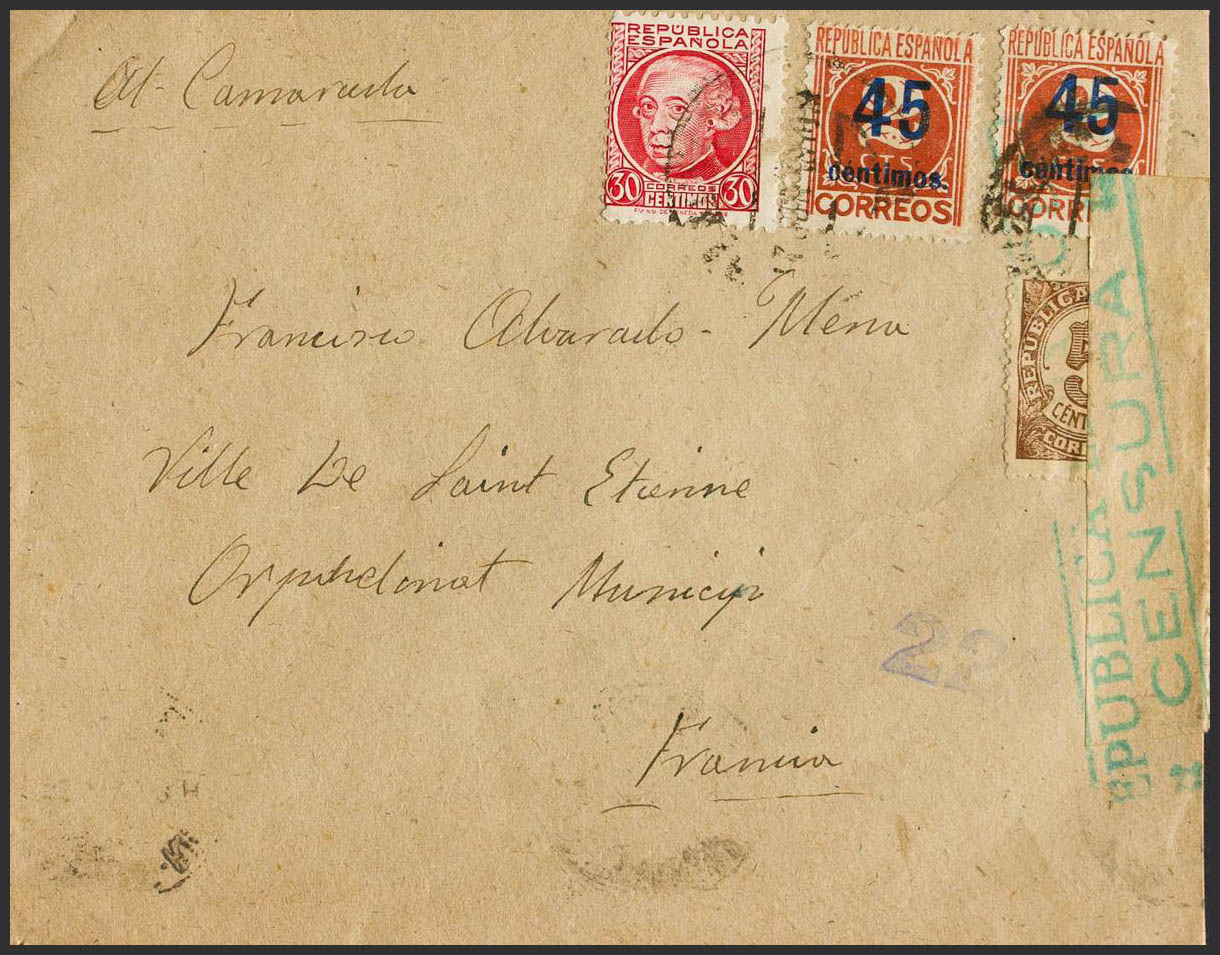 Al - Camarada
REPÚBLICA
ESPAÑOLA
30 CORREOS 30
CENTIMOS
REPÚBLICA ESPAÑOLA
45
CTS
céntimos.
CORREOS
REPÚBLICA ESPAÑOLA
45
CTS
céntimos
CORR
REPUBLICA
5
CÉNT
CORR
Francisco Alvarado - Mena
Ville De Saint Etienne
Orphelinat Municip
Francia
22
EPUBLICA E
CENSURA